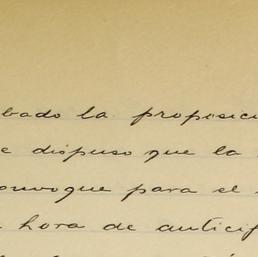 bado la proposici
e dispuso que la
onvoque para el
hora de anticip